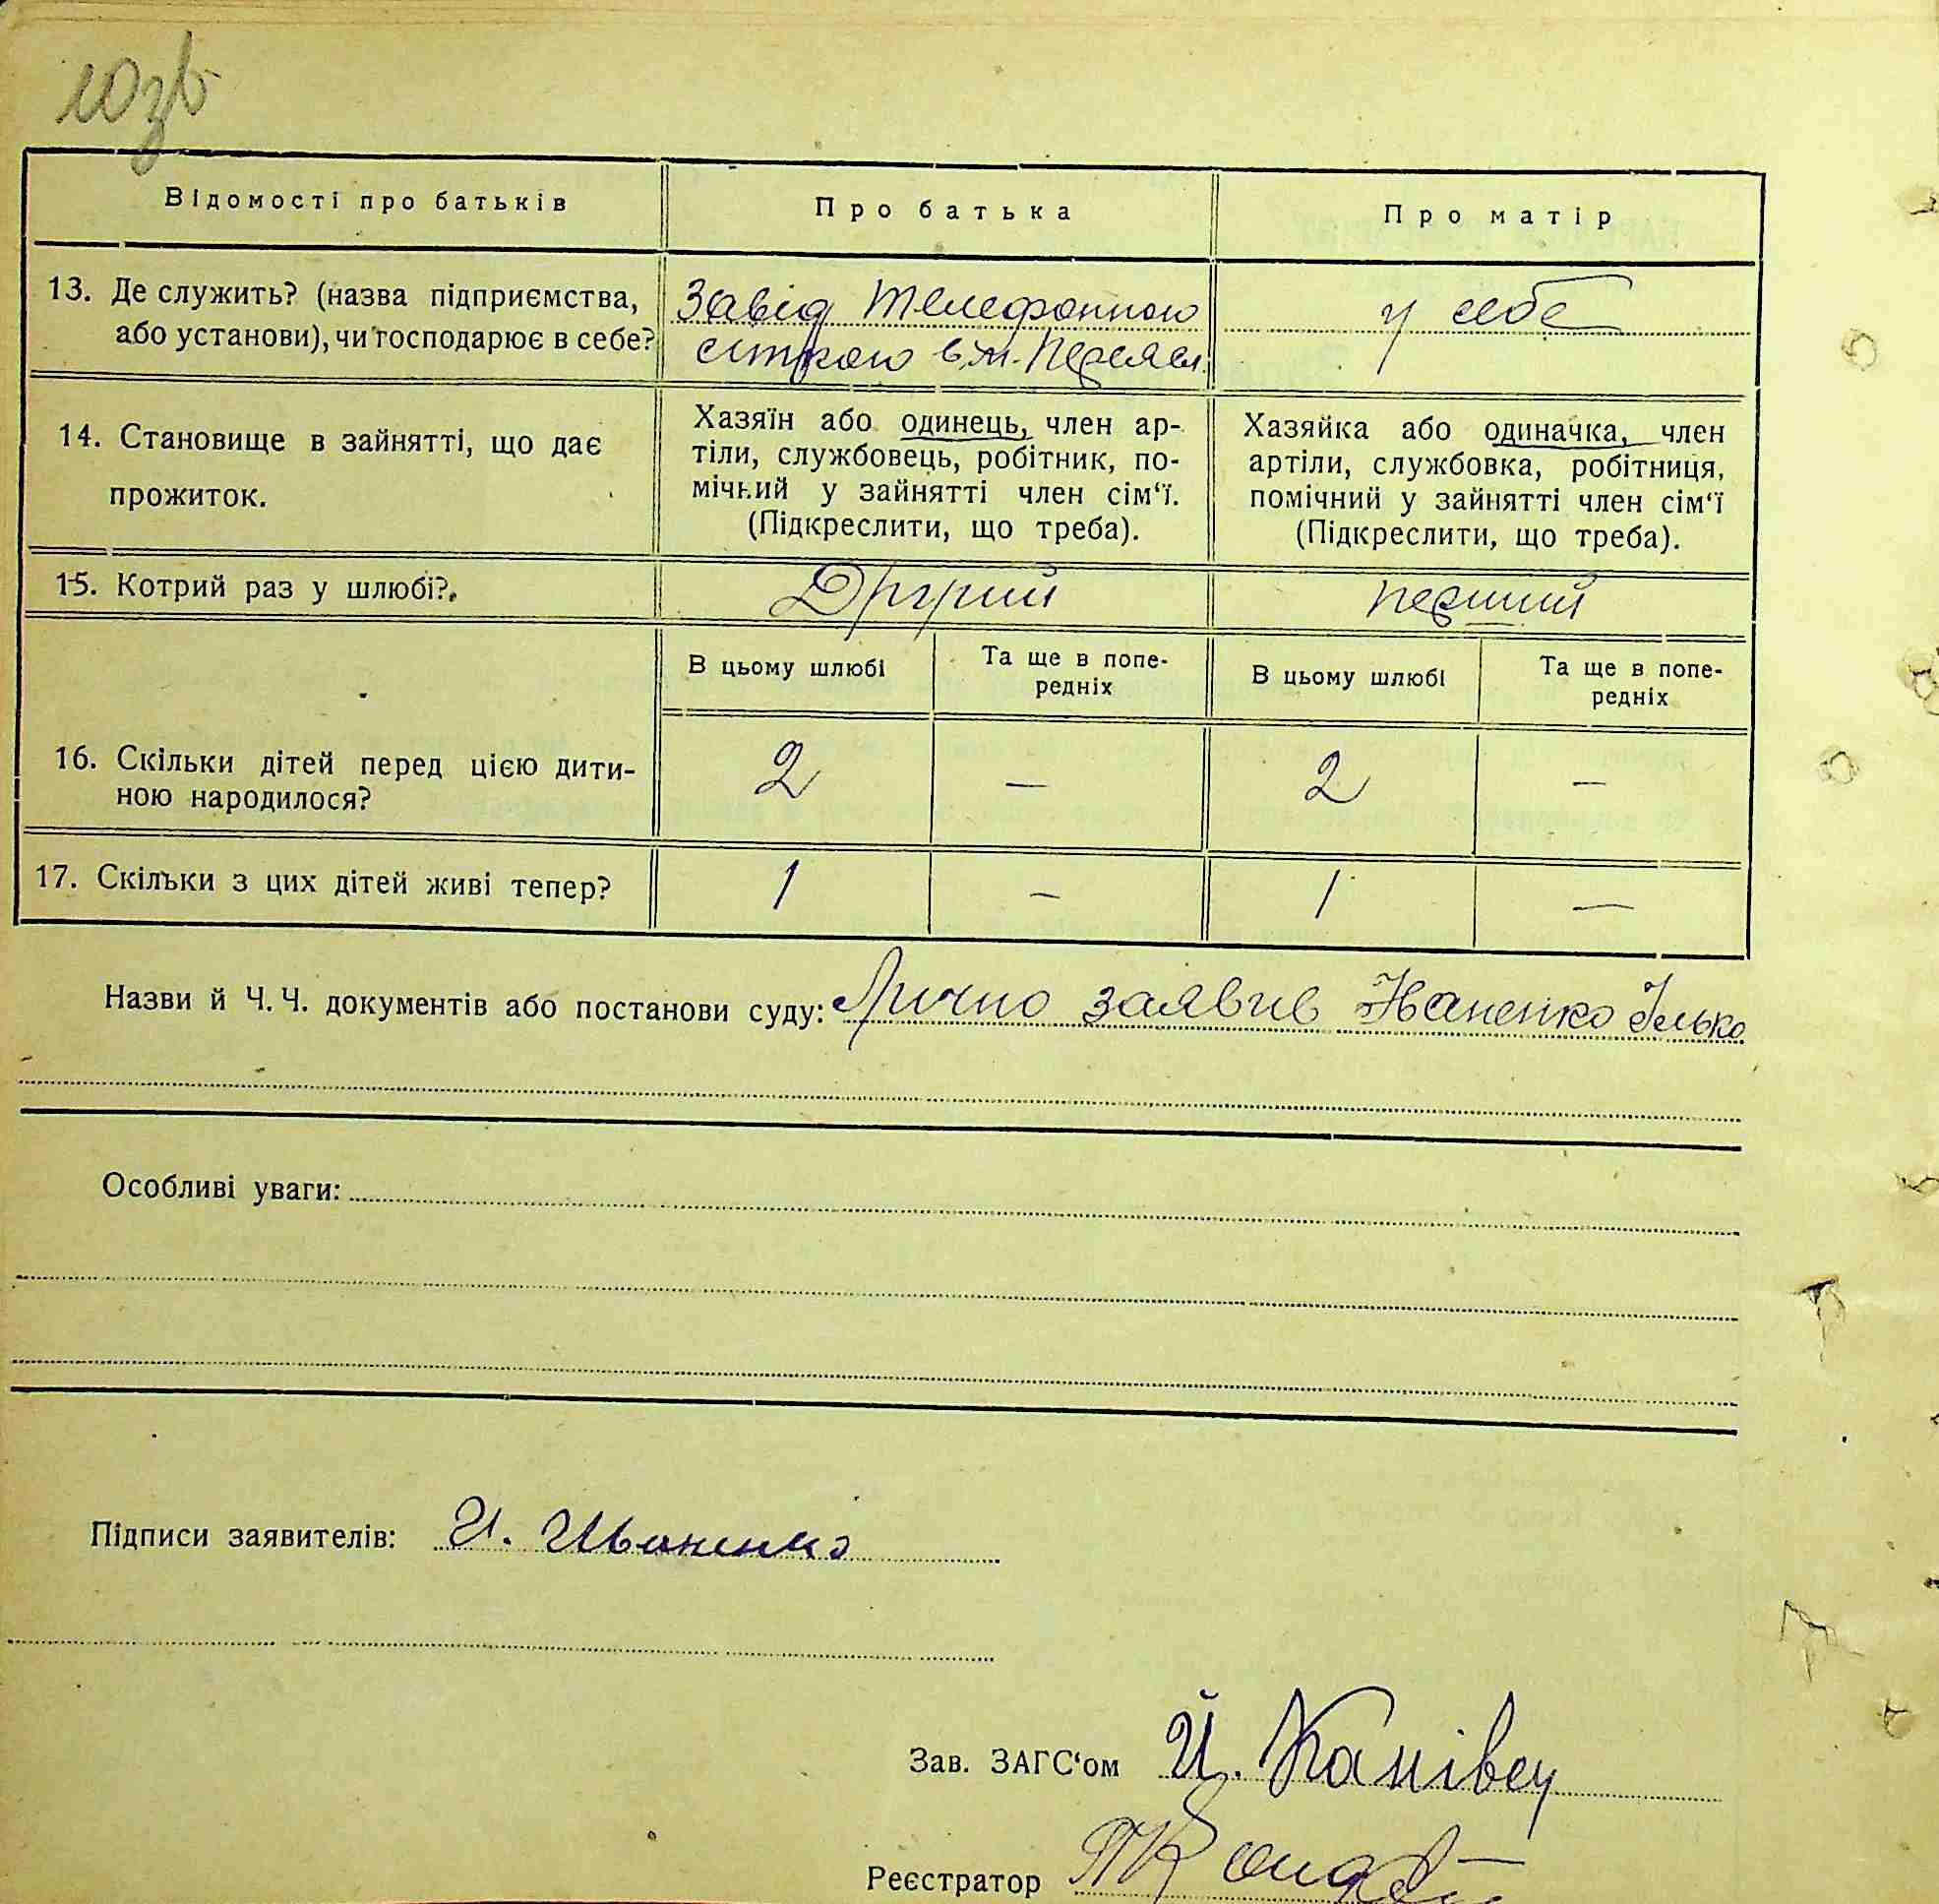 103б
Відомості про батьків
Про батька
Про матір
13. Де служить? (назва підприємства,
або установи), чи господарює в себе?
Завід Телефонною
сіткою в м. Переясл.
у себе
14. Становище в зайнятті, що дає
прожиток.
Хазяїн або одинець, член ар-
тіли, службовець, робітник, по-
мічний у зайнятті член сім‘ї.
(Підкреслити, що треба).
Хазяйка або одиначка, член
артіли, службовка, робітниця,
помічний у зайнятті член сім‘ї
(Підкреслити, що треба).
15. Котрий раз у шлюбі?
Другий
перший
В цьому шлюбі
Та ще в попе-
редніх
В цьому шлюбі
Та ще в попе-
редніх
16. Скільки дітей перед цією дити-
ною народилося?
2
—
2
—
17. Скільки з цих дітей живі тепер?
1
—
1
—
Назви й Ч. Ч. документів або постанови суду: Лично заявив Іваненко Ілько
Особливі уваги:
Підписи заявителів: И. Иваненко
Зав. ЗАГС‘ом Й. Канівец
Реєстратор